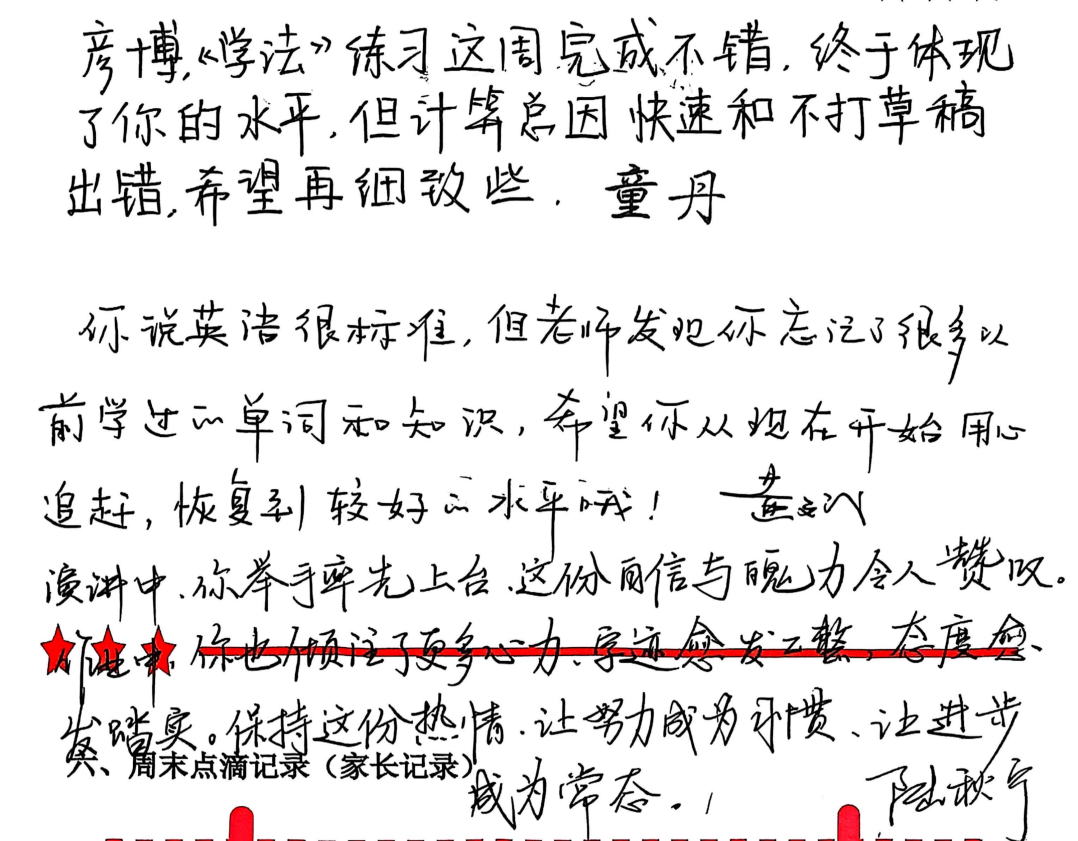 彦博,《学法》练习这周完成不错.终于体现
了你的水平,但计算总因快速和不打草稿
出错,希望再细致些. 童丹
你说英语很标准,但老师发现你忘记了很多以
前学过的单词和知识,希望你从现在开始用心
追赶,恢复到较好的水平哦!
演讲中、你举手率先上台、这份自信与魄力令人赞叹。
作业中、你也倾注了更多心力、字迹愈发工整、态度愈
发踏实。保持这份热情、让努力成为习惯、让进步
六、周末点滴记录(家长记录)
成为常态。 陆秋宁